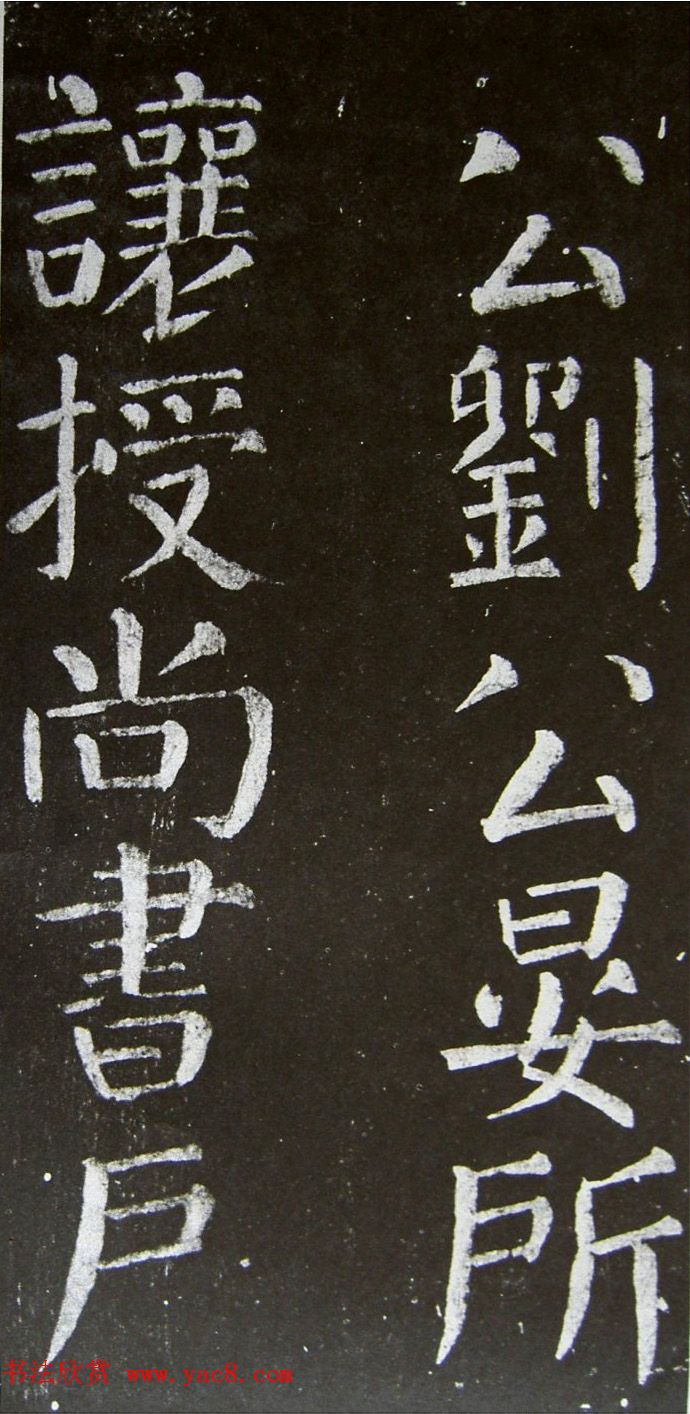 公劉公晏所
讓授尚書戶
书法欣赏 www.yac8.com